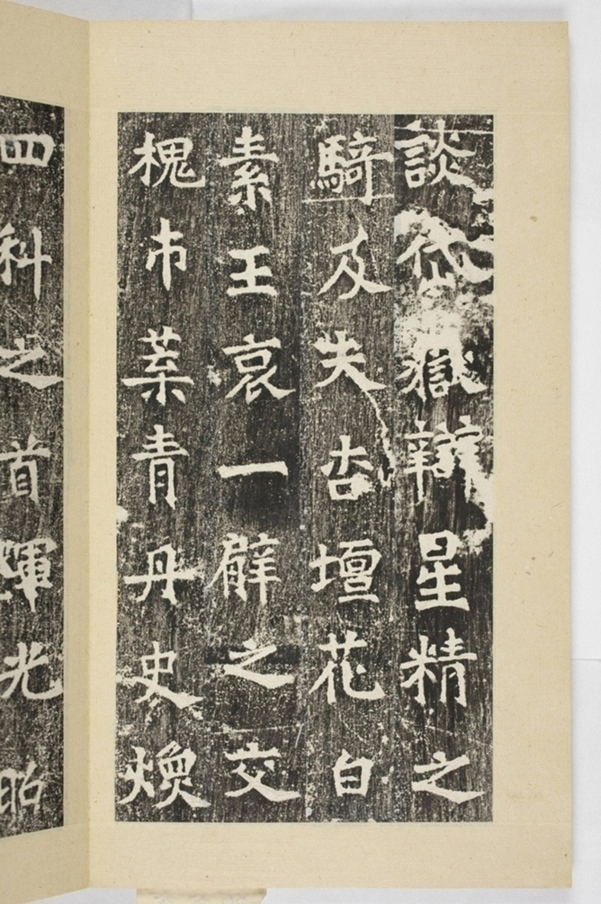 談岱嶽辯星精之
騎及夫杏壇花白
素王哀一臂之交
槐市葉青丹史煥
四科之首煇光昭